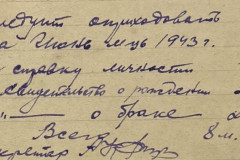 следует оприходовать
за Июнь м-ць 1943 г.
справку личности
свидетельство о рождении
—„— о браке
Всего 8 м.
секретар